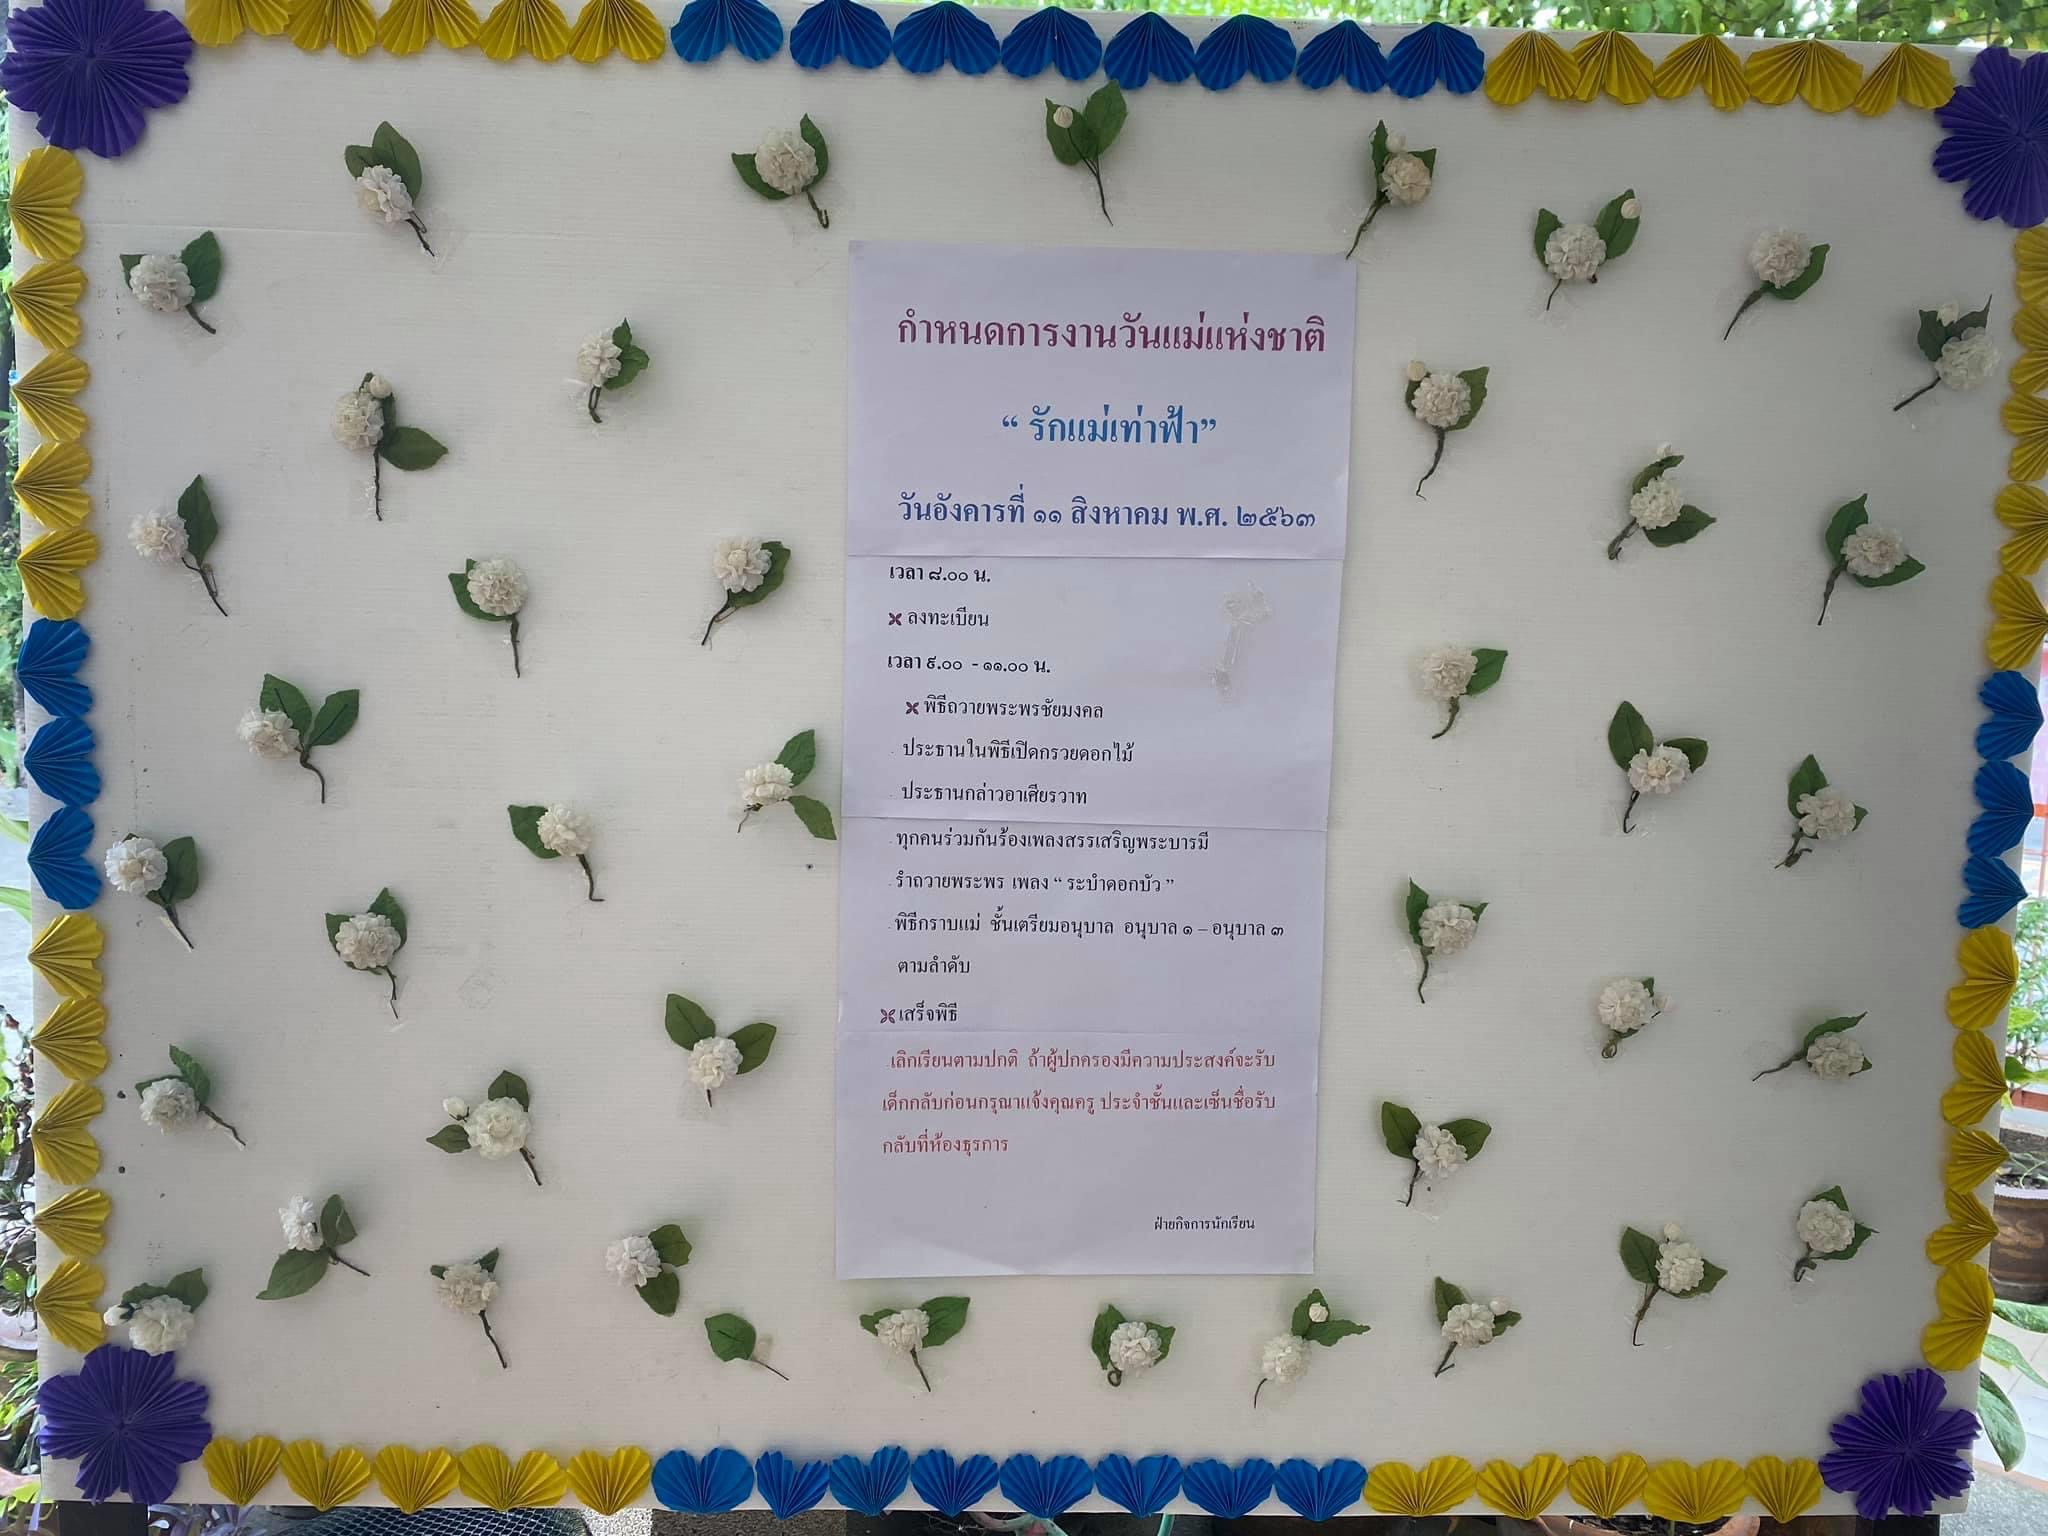 กำหนดการงานวันแม่แห่งชาติ
“ รักแม่เท่าฟ้า”
วันอังคารที่ ๑๑ สิงหาคม พ.ศ. ๒๕๖๓
เวลา ๘.๐๐ น.
ลงทะเบียน
เวลา ๙.๐๐ - ๑๑.๐๐ น.
พิธีถวายพระพรชัยมงคล
ประธานในพิธีเปิดกรวยดอกไม้
ประธานกล่าวอาเศียรวาท
ทุกคนร่วมกันร้องเพลงสรรเสริญพระบารมี
รำถวายพระพร เพลง “ ระบำดอกบัว ”
พิธีกราบแม่ ชั้นเตรียมอนุบาล อนุบาล ๑ – อนุบาล ๓
ตามลำดับ
เสร็จพิธี
เลิกเรียนตามปกติ ถ้าผู้ปกครองมีความประสงค์จะรับ
เด็กกลับก่อนกรุณาแจ้งคุณครู ประจำชั้นและเซ็นชื่อรับ
กลับที่ห้องธุรการ
ฝ่ายกิจการนักเรียน